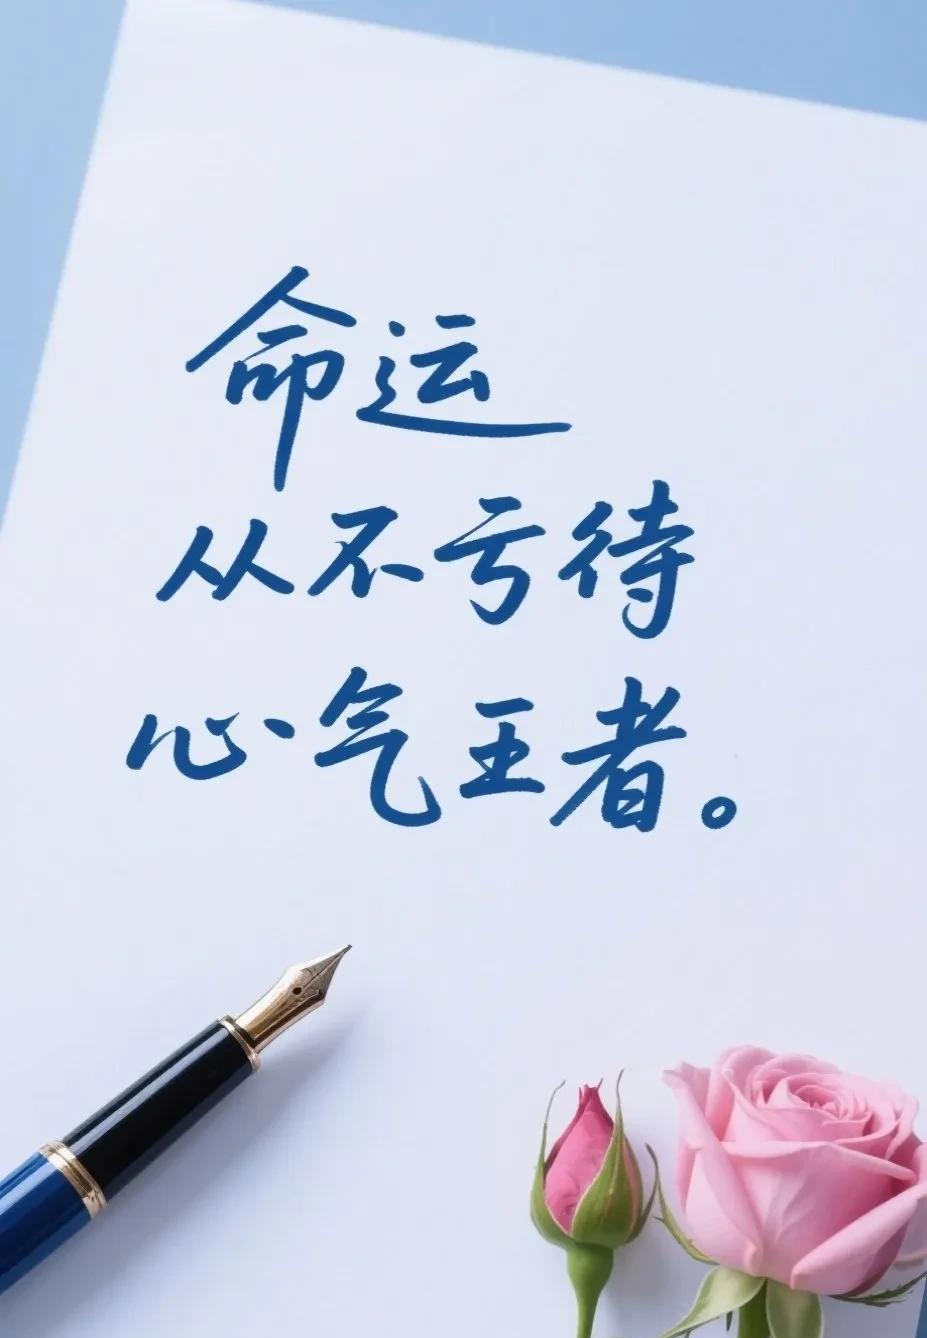 命运
从不亏待
心气王者。